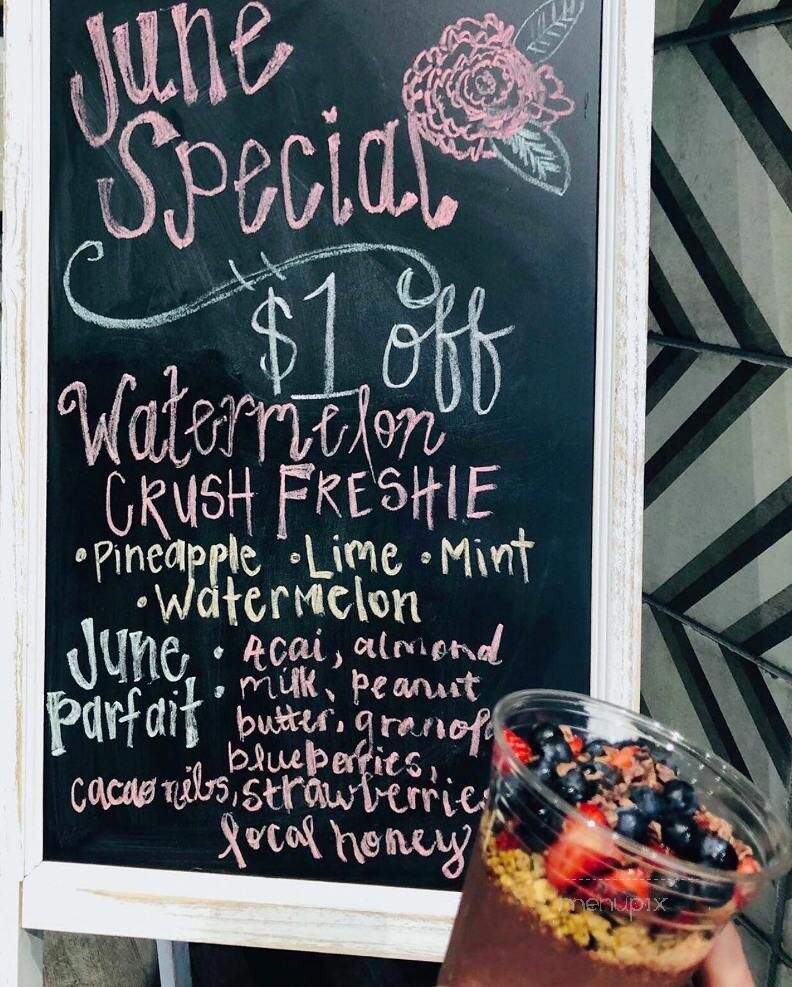 June
Special
$1 off
Watermelon
CRUSH FRESHIE
•Pineapple •Lime •Mint
•Watermelon
June
Parfait
: Acai, almond
milk, peanut
butter, granola
blueberries,
cacao nibs, strawberries
local honey
menupix